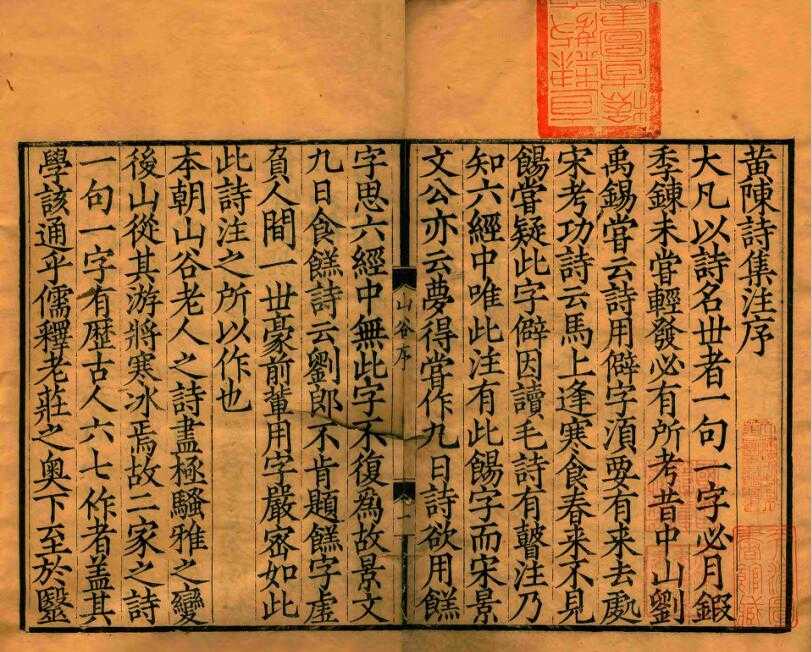 黃陳詩集注序
大凡以詩名世者一句一字必月鍛
季鍊未嘗輕發必有所考昔中山劉
禹錫嘗云詩用僻字須要有來去處
宋考功詩云馬上逢寒食春來不見
餳嘗疑此字僻因讀毛詩有瞽注乃
知六經中唯此注有此餳字而宋景
文公亦云夢得嘗作九日詩欲用餻
字思六經中無此字不復為故景文
九日食餻詩云劉郎不肯題餻字虛
負人間一世豪前輩用字嚴密如此
此詩注之所以作也
本朝山谷老人之詩盡極騷雅之變
後山從其游將寒冰焉故二家之詩
一句一字有歷古人六七作者蓋其
學該通乎儒釋老莊之奧下至於毉
山谷序
一